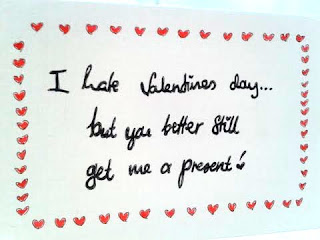 I hate Valentines day...
but you better still
get me a present!